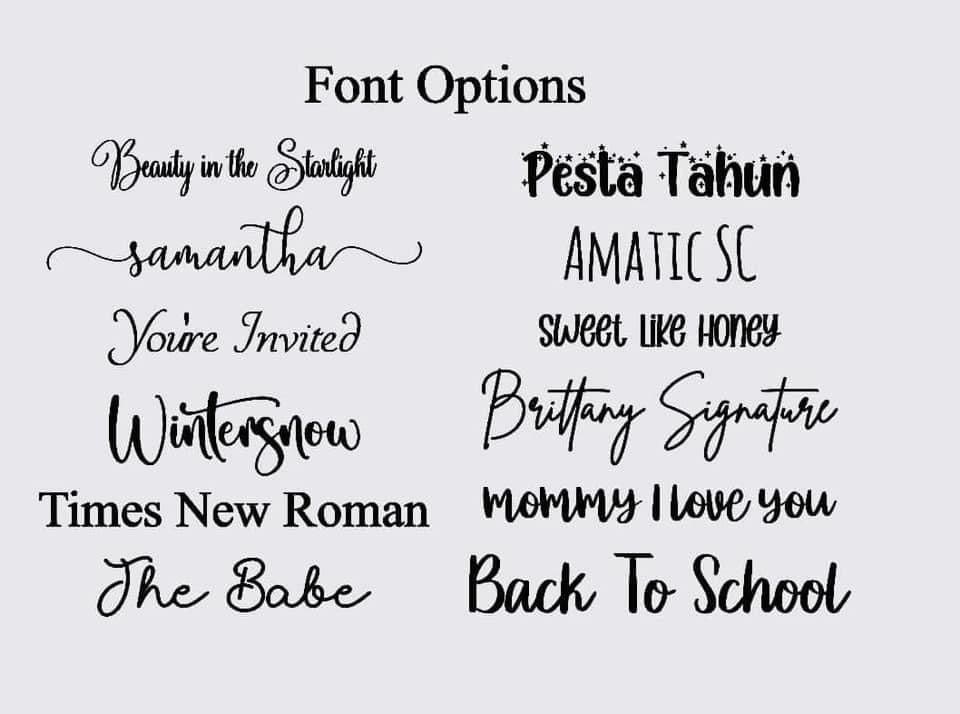 Font Options
Beauty in the Starlight
samantha
You're Invited
Wintersnow
Times New Roman
The Babe
Pesta Tahun
AMATIC SC
Sweet Like Honey
Brittany Signature
mommy I love you
Back To School